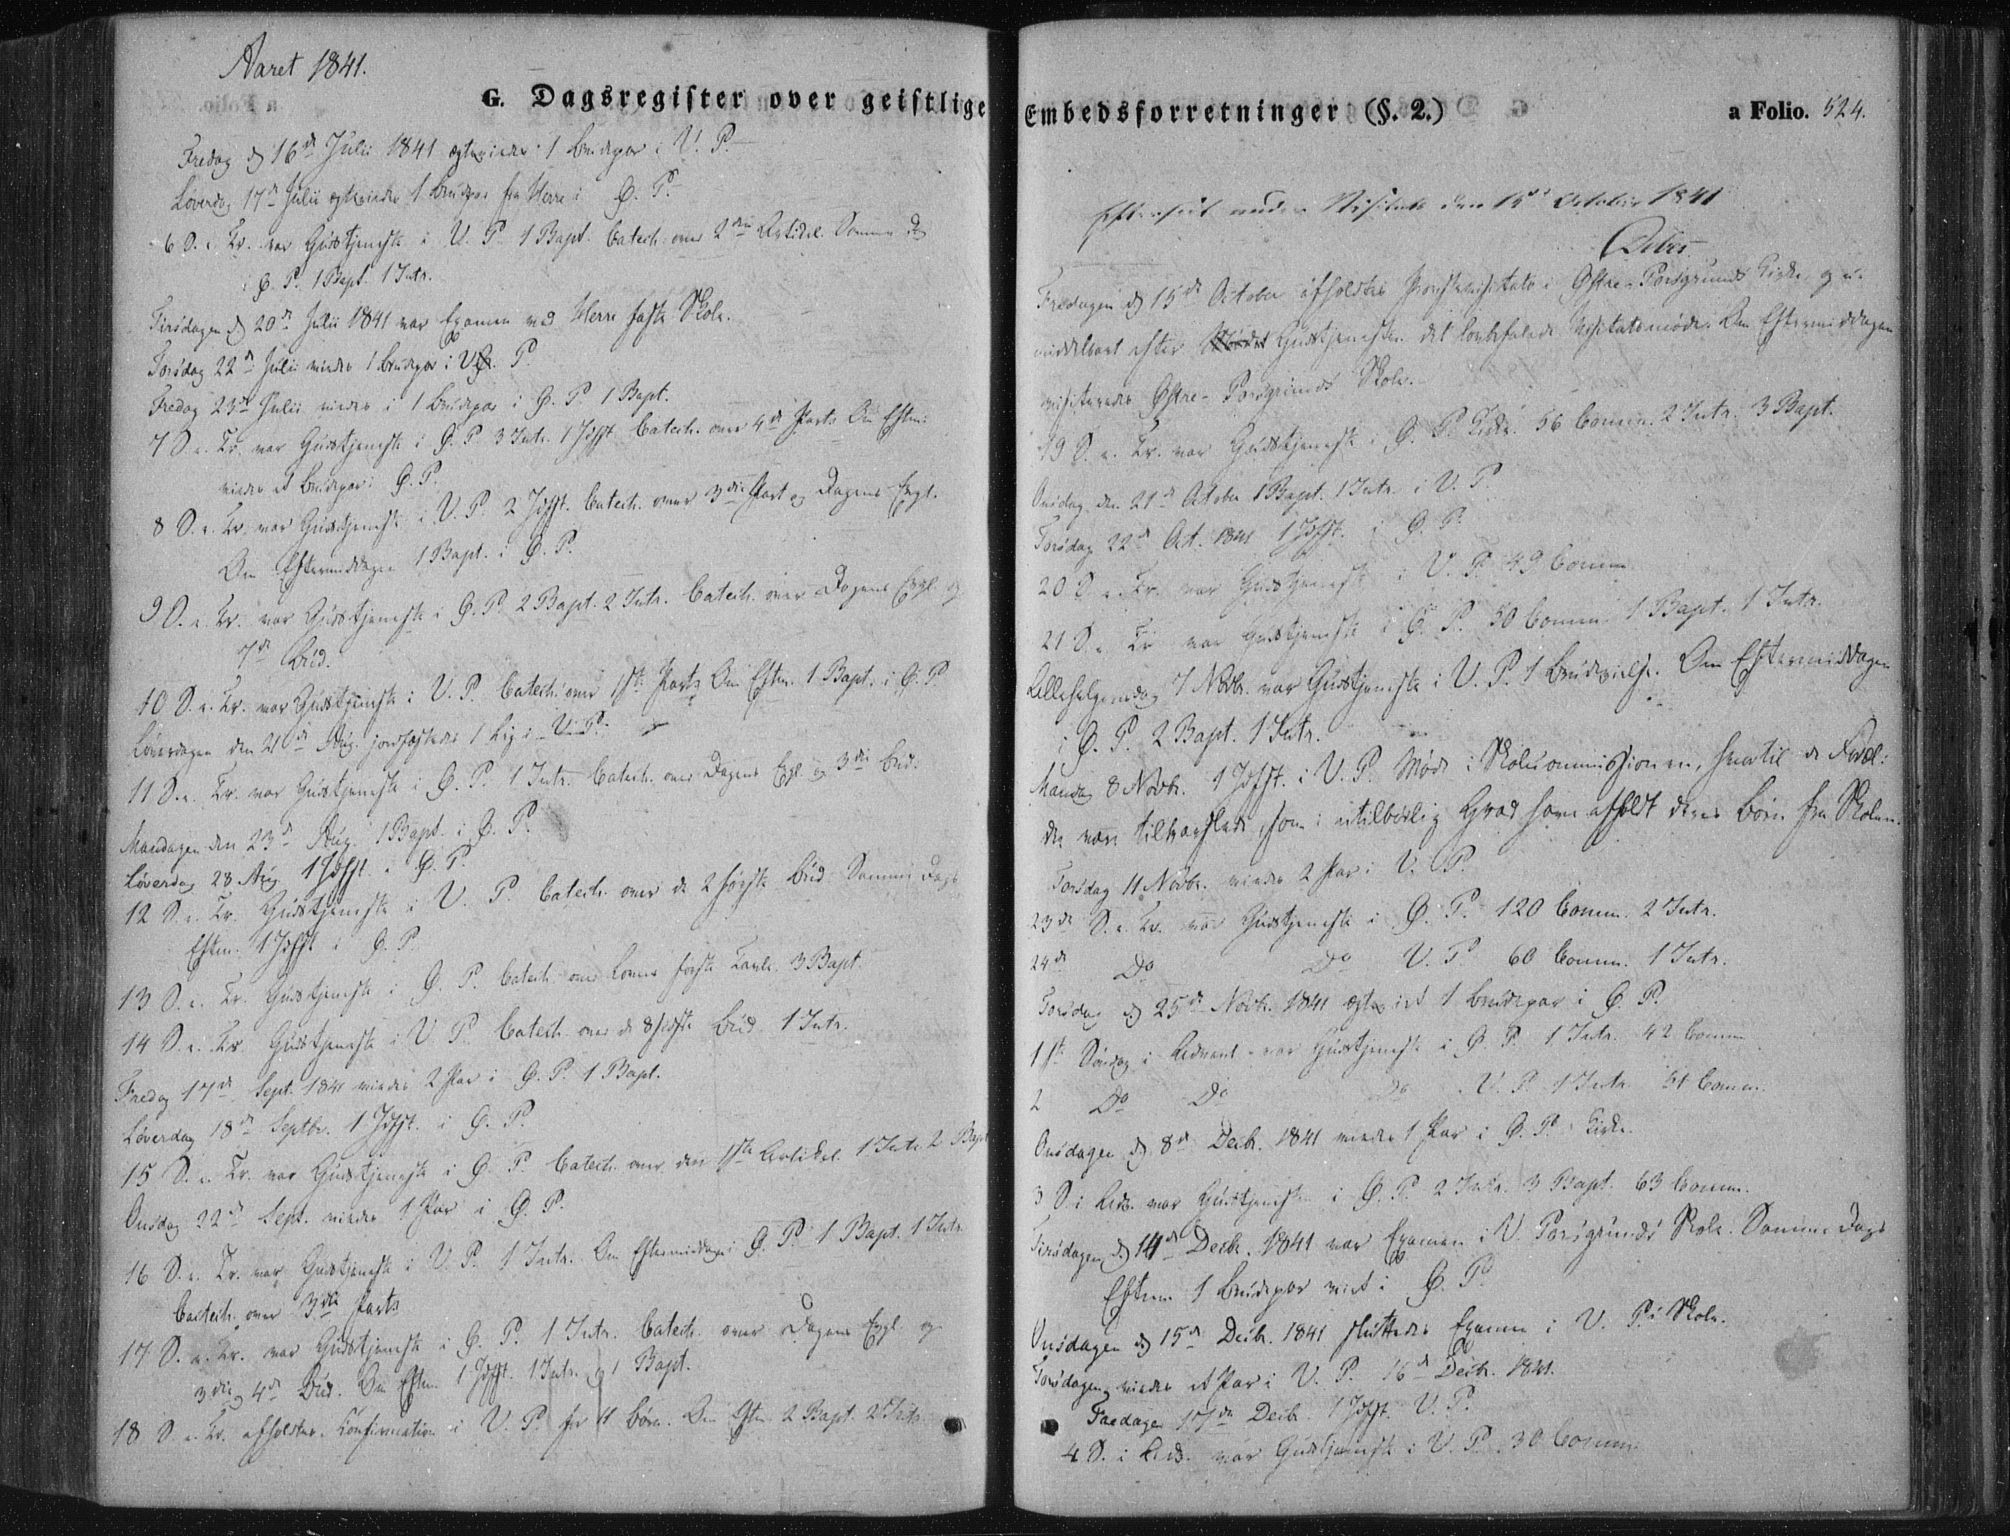 Aaret 1841.
G. Dagsregister over geistlige
Fredag d 16de Julii 1841 ægteviedes 1 Brudepar i V. P.
Løverdag 17de Julii ægteviedes 1 Brudepar fra Herre i Ø. P.
6 S. e. Tr. var Gudstjeneste i V. P. 1 Bapt. Catech. over 2den Artikel. Samme D
i Ø. P. 1 Bapt. 1 Intr.
Tirsdagen d 20de Julii 1841 var Examen ved Herre faste Skole.
Torsdag 22de Julii viedes 1 Brudepar i V. P.
Fredag 23de Julii viedes i 1 Brudepar i Ø. P. 1 Bapt.
7 S. e. Tr. var Gudstjeneste i Ø. P. 3 Intr. 1 Jdfst. Catech. over 4de Part. Om Efterm.
viedes et Brudepar i Ø. P.
8 S. e. Tr. var Gudstjeneste i V. P. 2 Jdfst. Catech. over 3die Part og Dagens Evgl.
Om Eftermiddagen 1 Bapt. i Ø. P.
9 S. e. Tr. var Gudstjeneste i Ø. P. 2 Bapt. 2 Intr. Catech. over Dagens Evgl. og
7de Bud.
10 S. e. Tr. var Gudstjeneste i V. P. Catech. over 1ste Part. Om Efterm. 1 Bapt. i Ø. P.
Løverdagen den 21de Aug. jordfæstedes 1 Lig i V. P.
11 S. e. Tr. var Gudstjeneste i Ø. P. 1 Intr. Catech. over Dagens Evgl. og 3die Bud.
Mandagen den 23de Aug. 1 Bapt. i Ø. P.
Løverdag 28 Aug. 1 Jdfst. i Ø. P.
12 S. e. Tr. Gudstjeneste i V. P. Catech. over de 2 første Bud. Samme Dags
Efterm. 1 Jdfst. i Ø. P.
13 S. e. Tr. Gudstjeneste i Ø. P. Catech. over Lovens første Tavle. 3 Bapt.
14 S. e. Tr. Gudstjeneste i V. P. Catech. over de 8 sidste Bud. 1 Intr.
Fredag 17de Sept. 1841 viedes 2 Par i Ø. P. 1 Bapt.
Løverdag 18de Septbr. 1 Jdfst. i Ø. P.
15 S. e. Tr. var Gudstjeneste i Ø. P. Catech. over den 1ste Artikel. 1 Intr. 2 Bapt.
Onsdag 22de Sept. viedes 1 Par i Ø. P.
16 S. e. Tr. var Gudstjeneste i V. P. 1 Intr. Om Eftermiddagen i Ø. P. 1 Bapt. 1 Intr.
Catech. over 3die Part
17 S. e. Tr. var Gudstjeneste i Ø. P. 1 Intr. Catech. over Dagens Evgl. og
3die og 4de Bud. Om Efterm. 1 Jdfst. 1 Intr. og 1 Bapt.
18 S. e. Tr. afholdtes Confirmation i V. P. for 11 Børn. Om Eftm. 2 Bapt. 2 Intr.
Embedsforretninger (§. 2.)
a Folio. 524.
Efterseet under Visitats den 15de October 1841
Fredagen d 15de October afholdtes Provstevisitats i Østre-Porsgrunds Kirke, og u-
middelbart efter Gudstjenesten det lovbefalede Visitatsmøde. Om Eftermiddagen
visiteredes Østre-Porsgrunds Skole.
19 S. e. Tr. var Gudstjeneste i Ø. P. Kirke. 56 Comm. 2 Intr. 3 Bapt.
Onsdag den 21de October 1 Bapt. 1 Intr. i V. P.
Torsdag 22de Oct. 1841 1 Jdfst. i Ø. P.
20 S. e. Tr. var Gudstjeneste i V. P. 49 Comm.
21 S. e. Tr. var Gudstjeneste i Ø. P. 50 Comm. 1 Bapt. 1 Intr.
Allehelgensdag 7 Novbr. var Gudstjeneste i V. P. 1 Brudevielse. Om Eftermiddagen
i Ø. P. 2 Bapt. 1 Intr.
Mandag 8 Novbr. 1 Jdfst. i V. P. Møde i Skolecommissionen, hvortil de Foræl-
dre vare tilvarslede, som i utilbørlig Grad have afholdt deres Børn fra Skolen.
Torsdag 11 Novbr. viedes 2 Par i V. P.
23de S. e. Tr. var Gudstjeneste i Ø. P. 120 Comm. 2 Intr.
24de Do Do V. P. 60 Comm. 1 Intr.
Torsdag d 25de Novbr. 1841 ægteviet 1 Brudepar i Ø. P.
1ste Søndag i Advent var Gudstjeneste i Ø. P. 1 Intr. 42 Comm.
2 Do Do Do V. P. 1 Intr. 51 Comm.
Onsdagen d 8de Decbr. 1841 viedes 1 Par i Ø. P. Kirke.
3 S. i Adv. var Gudstjeneste i Ø. P. 2 Intr. 3 Bapt. 63 Comm.
Tirsdagen d 14de Decbr. 1841 var Examen i V. Porsgrunds Skole. Samme Dags
Efterm. 1 Brudepar viet i Ø. P.
Onsdagen d 15de Decbr. 1841 sluttedes Examen i V. P.s Skole.
Torsdagen viedes et Par i V. P. 16de Decbr. 1841.
Fredagen 17de Decbr. 1 Jdfst. V. P.
4 S. i Adv. var Gudstjeneste i V. P. 30 Comm.